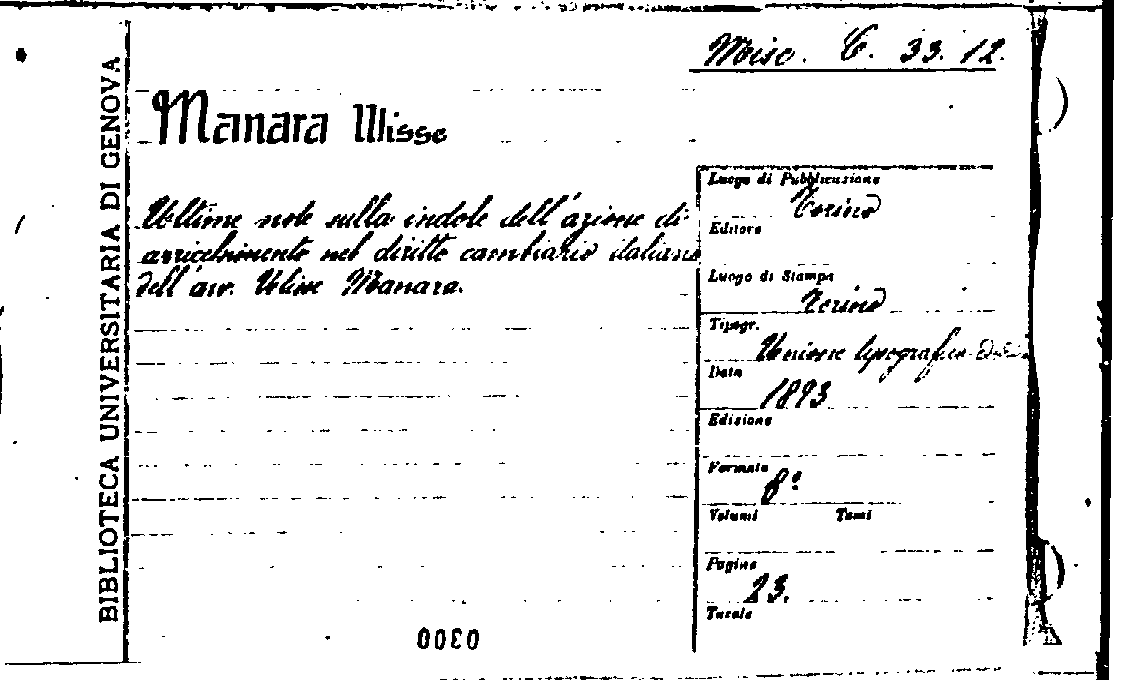 BIBLIOTECA UNIVERSITARIA DI GENOVA
Misc. C. 33. 12.
Manara Ulisse
Ultime note sulla indole dell'azione di
arricchimento nel diritto cambiario italiano
dell'avv. Ulisse Manara.
Luogo di Pubblicazione
Torino
Editore
Luogo di Stampa
Torino
Tipogr.
Unione tipografico
Data
1893
Edizione
Formato
8º
Volumi Tomi
Pagine
23.
Tavole
0300